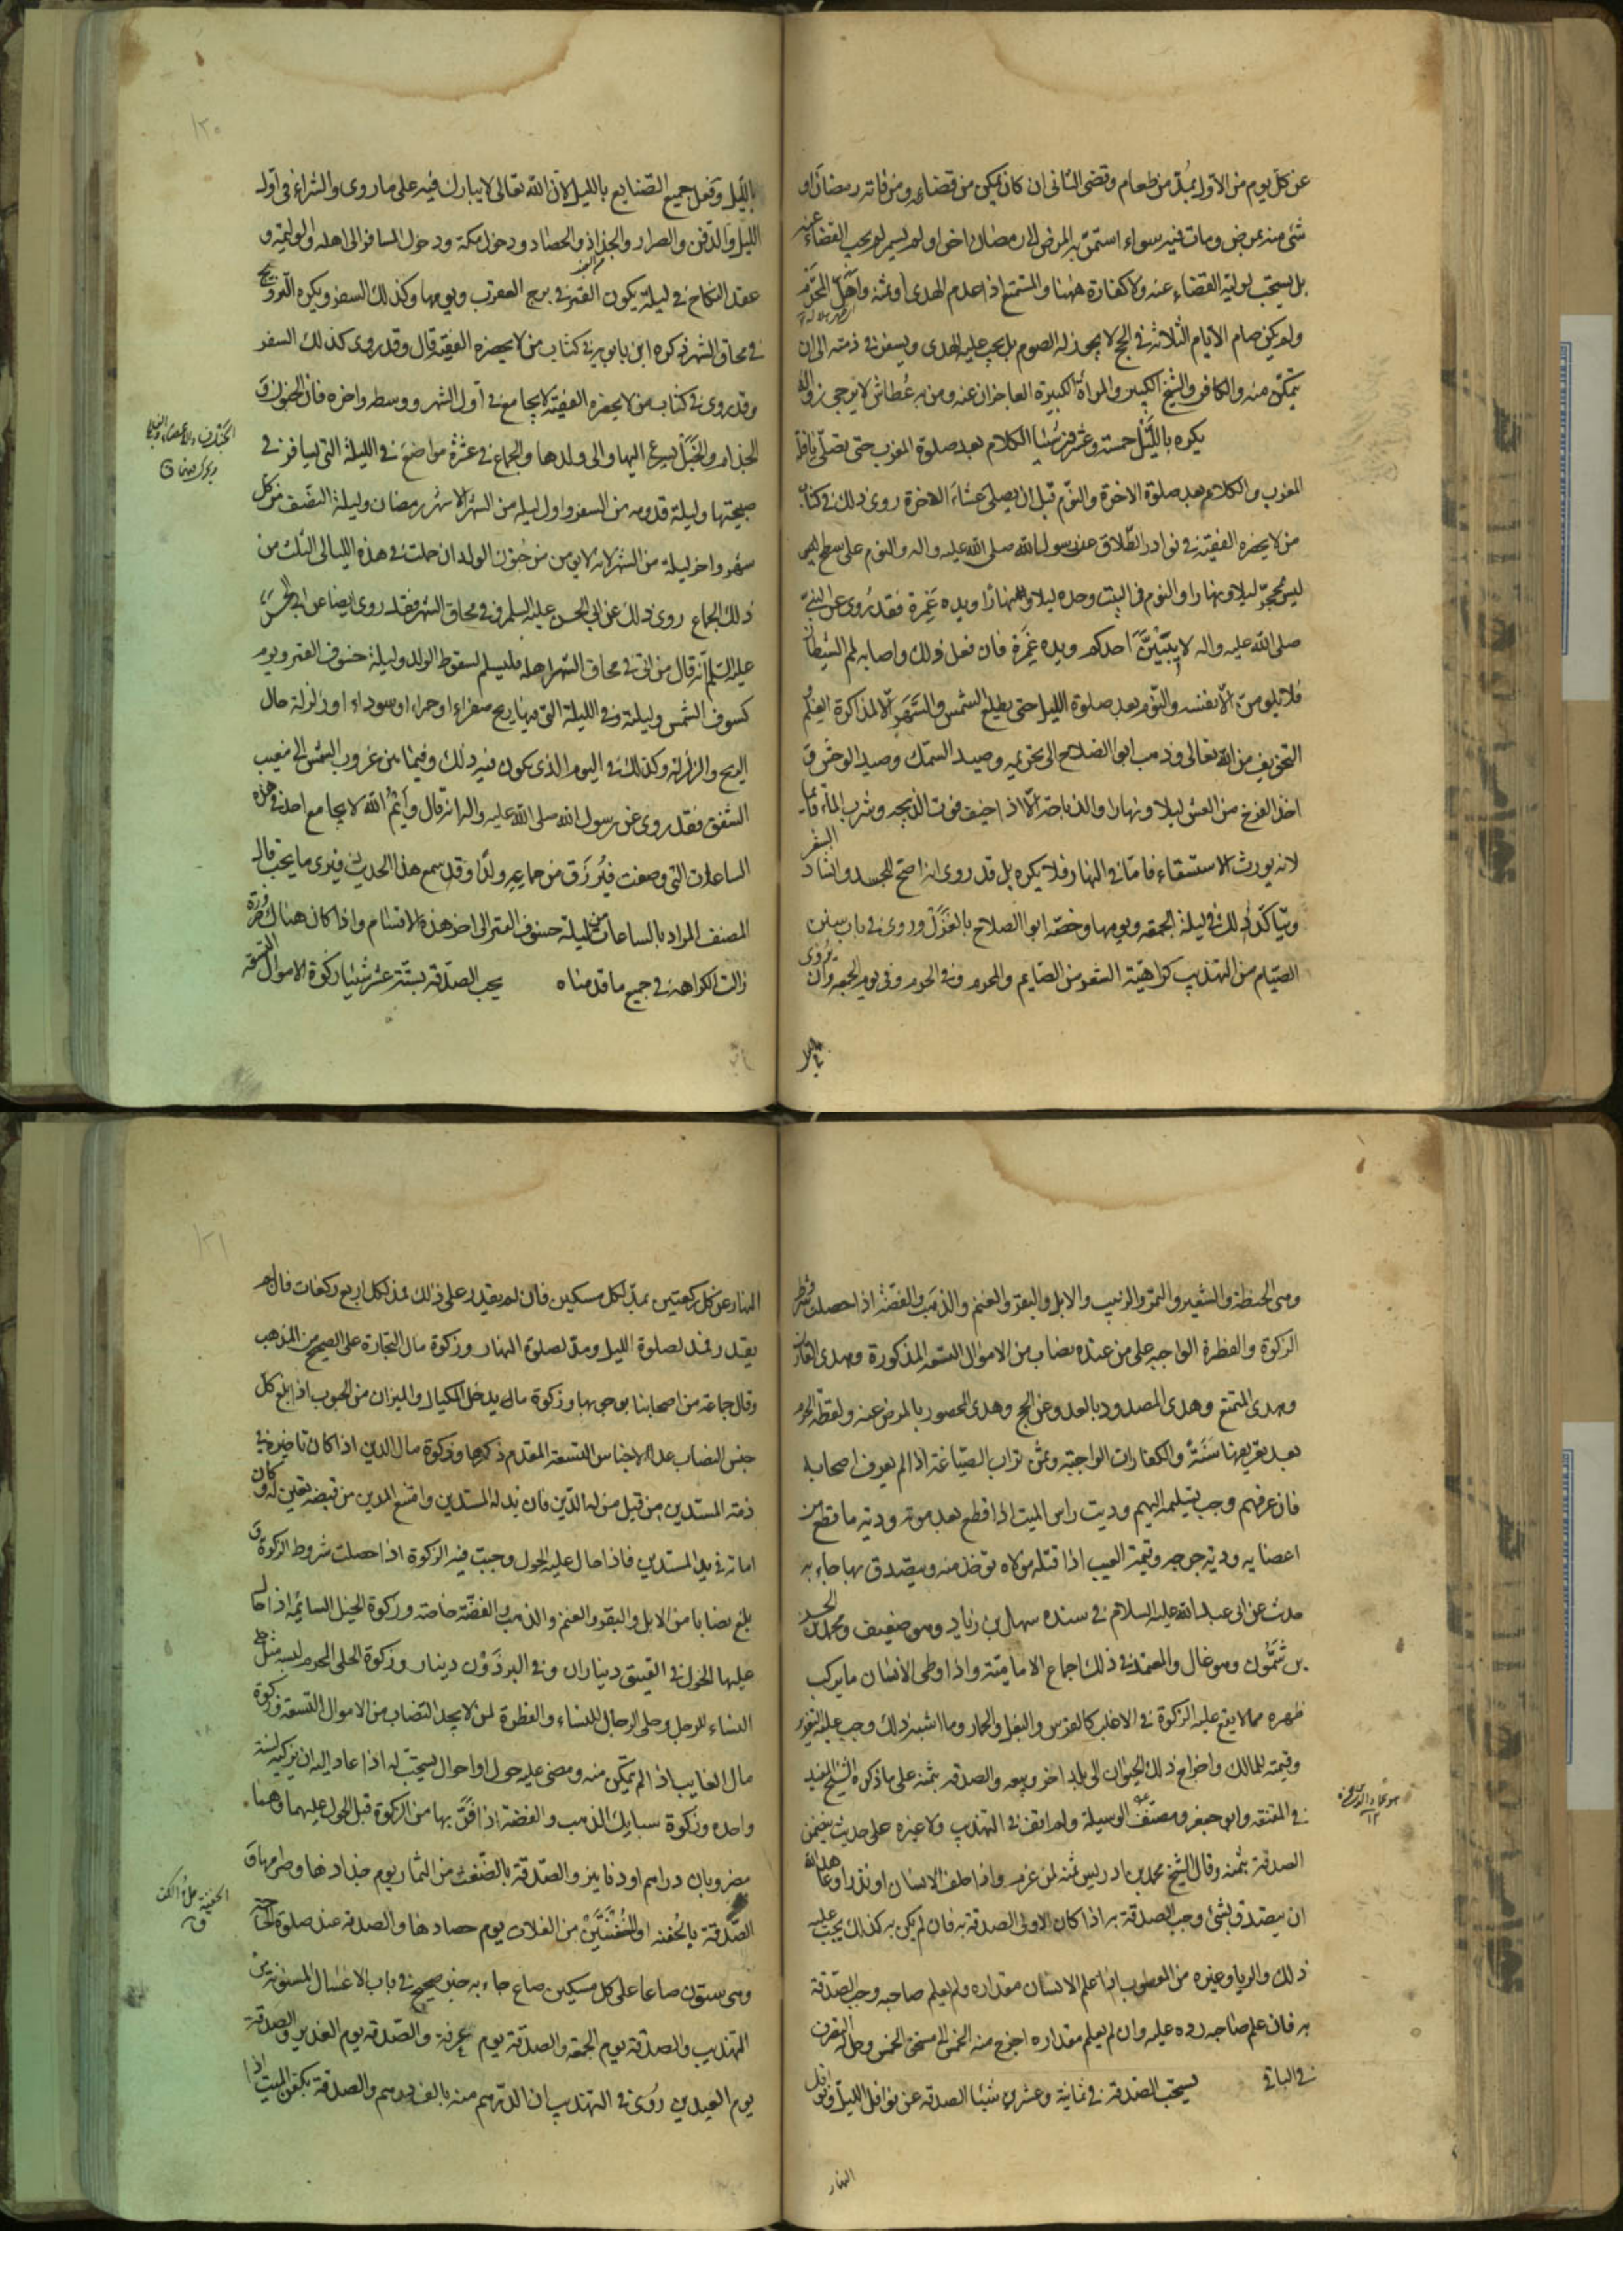 عن كل يوم من الاول بمد من طعام وقضى الثانى ان كان يمكن من قضائه ومن فاته رمضان او
شئ منه بمرض ومات فيه سواء استمر به المرض الى رمضان اخر او لم يستمر لم يجب القضاء عنه
بل يستحب لوليه القضاء عنه ولا كفارة ههنا والمتمتع اذا عدم الهدى او ثمنه واهل المحرم
ولم يكن صام الايام الثلاثة فى الحج لا يجوز له الصوم بل يجب عليه الهدى ويستقر فى ذمته الى ان
يتمكن منه والكافر والشيخ الكبير والمرأة الكبيرة العاجزان عنه ومن به عطاش لا يرجى زواله
يكره بالليل خمسة وعشرون شيئا الكلام بعد صلوة المغرب حتى يصلى نافلة
المغرب والكلام بعد صلوة الاخرة والنوم قبل ان يصلى عشاء الاخرة روى ذلك فى كتاب
من لا يحضره الفقيه فى نوادر الطلاق عن رسول الله صلى الله عليه واله والنوم على سطح
ليس بمحجر ليلا ونهارا والنوم فى البيت وحده ليلا ونهارا ويده غمرة فقد روى عن النبى
صلى الله عليه واله لا يبيتن احدكم ويده غمرة فان فعل ذلك واصابه لمم الشيطان
فلا يلومن الا نفسه والنوم بعد صلوة الليل حتى يطلع الشمس والسهر الا لمذاكرة العلم
التخويف من الله تعالى وذهب ابو الصلاح الى تحريمه وصيد السمك وصيد الوحش و
اخذ الفرخ من العش ليلا ونهارا والذباحة الا اذا خيف فوت الذبيحه وشرب الماء قائما
لانه يورث الاستسقاء فاما فى النهار فلا يكره بل قد روى انه اصح للجسد وانشاد الشعر
ويتاكد ذلك فى ليلة الجمعة ويومها وخصه ابو الصلاح بالغزل وروى فى باب سنن
الصيام من التهذيب كراهية الشعر من الصايم والمحرم وفى الحرم وفى يوم الجمعة وان يروى
بالليل
بالليل وفعل جميع الصنايع بالليل لان الله تعالى لا يبارك فيه على ما روى والشراء فى اول
الليل والدفن والصرار والجذاذ والحصاد ودخول مكة ودخول المسافر الى اهله والوليمة و
عقد النكاح فى ليلة يكون القمر فى برج العقرب ويومها وكذلك السفر ويكره التزويج
فى محاق الشهر ذكره ابن بابويه فى كتاب من لا يحضره الفقيه قال وقد روى كذلك السفر
وقد روى فى كتاب من لا يحضره الفقيه لا يجامع فى اول الشهر ووسطه واخره فان الجنون و
الجذام والخبل يسرع اليها والى ولدها والجماع فى عشرة مواضع فى الليلة التى يسافر فى
صبيحتها وليلة قدومه من السفر واول ليلة من الشهر الا شهر رمضان وليلة النصف من كل
شهر واخر ليلة من الشهر لانه لا يومن من جنون الولد ان حملت فى هذه الليالى الثلث من
ذلك الجماع روى ذلك عن ابى الحسن عليه السلم وفى محاق الشهر فقد روى ايضا عن ابى الحسن
عليه السلم انه قال من اتى فى محاق الشهر اهله فليسلم لسقوط الولد وليلة خسوف القمر ويوم
كسوف الشمس وليلته وفى الليلة التى فيها ريح صفراء او حمراء او سوداء او زلزلة حال
الريح والزلزلة وكذلك فى اليوم الذى يكون فيه ذلك وفيما بين غروب الشمس الى مغيب
الشفق فقد روى عن رسول الله صلى الله عليه واله انه قال وايم الله لا يجامع احد فى هذه
الساعات التى وصفت فيرزق من جماعه ولدا وقد سمع هذا الحديث فيرى ما يحب قال
المصنف المراد بالساعات من ليلة خسوف القمر الى اخر هذه الاقسام واذا كان هناك ضرورة
زالت الكراهة فى جميع ما قدمناه يجب الصدقة بستة عشر شيئا زكوة الاموال التسعة
وهى الحنطة والشعير والتمر والزبيب والابل والبقر والغنم والذهب والفضة اذا حصلت شروط
الزكوة والفطرة الواجبة على من عنده نصاب من الاموال التسعة المذكورة وهدى القارن
وهدى المتمتع وهدى المصدود بالعدو عن الحج وهدى المحصور بالمرض عنه ولقطة الحرم
بعد تعريفها سنة والكفارات الواجبة وثمن تراب الصياغة اذا لم يعرف اصحابه
فان عرفهم وجب تسليمه اليهم وديت راس الميت اذا قطع بعد موته ودية ما قطع من
اعضايه ودية جرحه وقيمة العبد اذا قتله مولاه توخذ منه ويتصدق بها جاء به
حديث عن ابى عبد الله عليه السلام فى سنده سهل بن زياد وهو ضعيف ومحمد بن الحسن
بن شمون وهو غال والمعتمد فى ذلك اجماع الامامية واذا وطى الانسان ما يركب
ظهره مما لا يقع عليه الزكوة فى الاغلب كالفرس والبغل والحمار وما اشبه ذلك وجب عليه التعزير
وقيمته للمالك واخراج ذلك الحيوان الى بلد اخر وبيعه والصدقه بثمنه على ما ذكره الشيخ المفيد
فى المقنعه وابو جعفر ومصنف الوسيلة ولم اقف فى التهذيب ولا غيره على حديث يتضمن
الصدقة بثمنه وقال الشيخ محمد بن ادريس ثمنه لمن غرمه واذا حلف الانسان او نذر او عاهد الله
ان يتصدق بشئ وجب الصدقة به اذا كان الاولى الصدقة به فان لم يكن به كذلك يجب عليه
ذلك والربا وغيره من المغصوب اذا علم الانسان مقداره ولم يعلم صاحبه وجب الصدقة
به فان علم صاحبه رده عليه وان لم يعلم مقداره اخرج منه الخمس الى مستحق الخمس وحل له التصرف
فى الباقى يستحب الصدقة فى ثمانية وعشرين شيئا الصدقه عن نوافل الليل ونوافل
النهار
النهار عن كل ركعتين بمد لكل مسكين فان لم يقدر على ذلك فمد لكل اربع ركعات فان لم
يقدر فمد لصلوة الليل ومد لصلوة النهار وزكوة مال التجارة على الصحيح من المذهب
وقال جماعة من اصحابنا بوجوبها وزكوة مال يدخل المكيال والميزان من الحبوب اذا بلغ كل
جنس النصاب عدا الاجناس التسعة المقدم ذكرها وزكوة مال الدين اذا كان تاخيره فى
ذمة المستدين من قبل من له الدين فان بذله المستدين وامتنع المدين من قبضه تعين له وكان
امانة فى يد المستدين فاذا حال عليه الحول وجبت فيه الزكوة اذا حصلت شروط الزكوة و
بلغ نصابا من الابل والبقر والغنم والذهب والفضة خاصة وزكوة الخيل السائمة اذا حال
عليها الحول فى العتيق ديناران وفى البرذون دينار وزكوة الحلى المحرم لبسه مثل حلى
النساء للرجل وحلى الرجال للنساء والفطرة لمن لا يجد النصاب من الاموال التسعة وزكوة
مال الغايب اذا لم يتمكن منه ومضى عليه حول او احوال يستحب له اذا عاد اليه ان يزكيه لسنة
واحدة وزكوة سبايك الذهب والفضة اذا فر بها من الزكوة قبل الحول عليهما وهما
مضروبان دراهم او دنانير والصدقة بالضغث من الثمار يوم جذاذها وصرامها و
الصدقة بالحفنه او الحفنتين من الغلات يوم حصادها والصدقه عند صلوة الحاجة
وهى ستون صاعا على كل مسكين صاع جاء به خبر صحيح فى باب الاغسال المسنونة من
التهذيب والصدقة يوم الجمعة والصدقة يوم عرفة والصدقه يوم الغدير والصدقة
يوم العيدين روى فى التهذيب ان الدرهم منه بالف درهم والصدقة بكفن الميت اذا